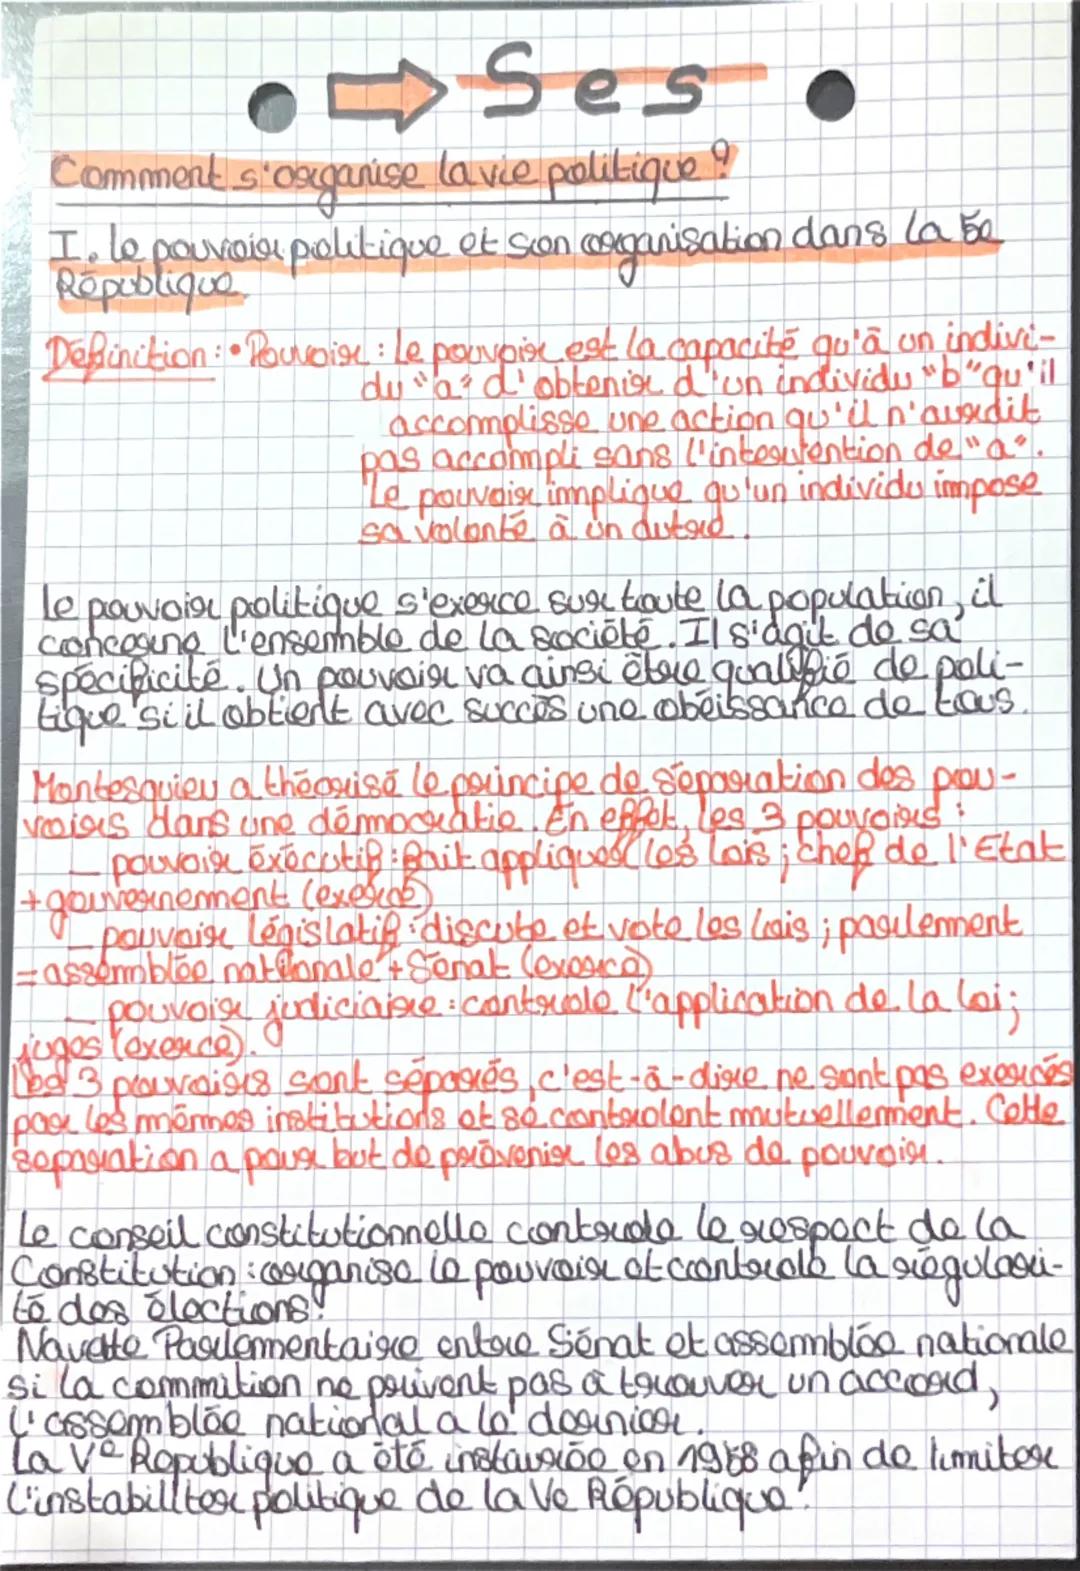 Ses
Comment s'organise la vie politique ?
I. le pouvoir politique et son organisation dans la 5e
République.
Définition : • Pouvoir : le pouvoir est la capacité qu'à un indivi-
du "a" d'obtenir d'un individu "b" qu'il
accomplisse une action qu'il n'aurait
pas accompli sans l'intervention de "a".
Le pouvoir implique qu'un individu impose
sa volonté à un autre.
Le pouvoir politique s'exerce sur toute la population, il
concerne l'ensemble de la société. Il s'agit de sa
spécificité. Un pouvoir va ainsi être qualifié de poli-
tique si il obtient avec succès une obéissance de tous.
Montesquieu a théorisé le principe de séparation des pou-
voirs dans une démocratie. En effet, les 3 pouvoirs :
_ pouvoir éxécutif : fait appliquer les lois ; chef de l'Etat
+ gouvernement (exerce)
_ pouvoir législatif : discute et vote les lois ; parlement
= assemblée nationale + Sénat (exerce)
_ pouvoir judiciaire : controle l'application de la loi ;
juges (exerce).
Les 3 pouvoirs sont séparés, c'est-à-dire ne sont pas exercés
par les mêmes institutions et se controlent mutuellement. Cette
separation a pour but de prévenir les abus de pouvoir.
Le conseil constitutionnelle controle le respect de la
Constitution : organise le pouvoir et controle la régulari-
té des élections.
Navette Parlementaire entre Sénat et assemblée nationale
si la commition ne peuvent pas à trouver un accord,
l'assemblée national a le dernier.
La Ve Republique a été instaurée en 1958 afin de limiter
l'instabilliter politique de la Ve République.